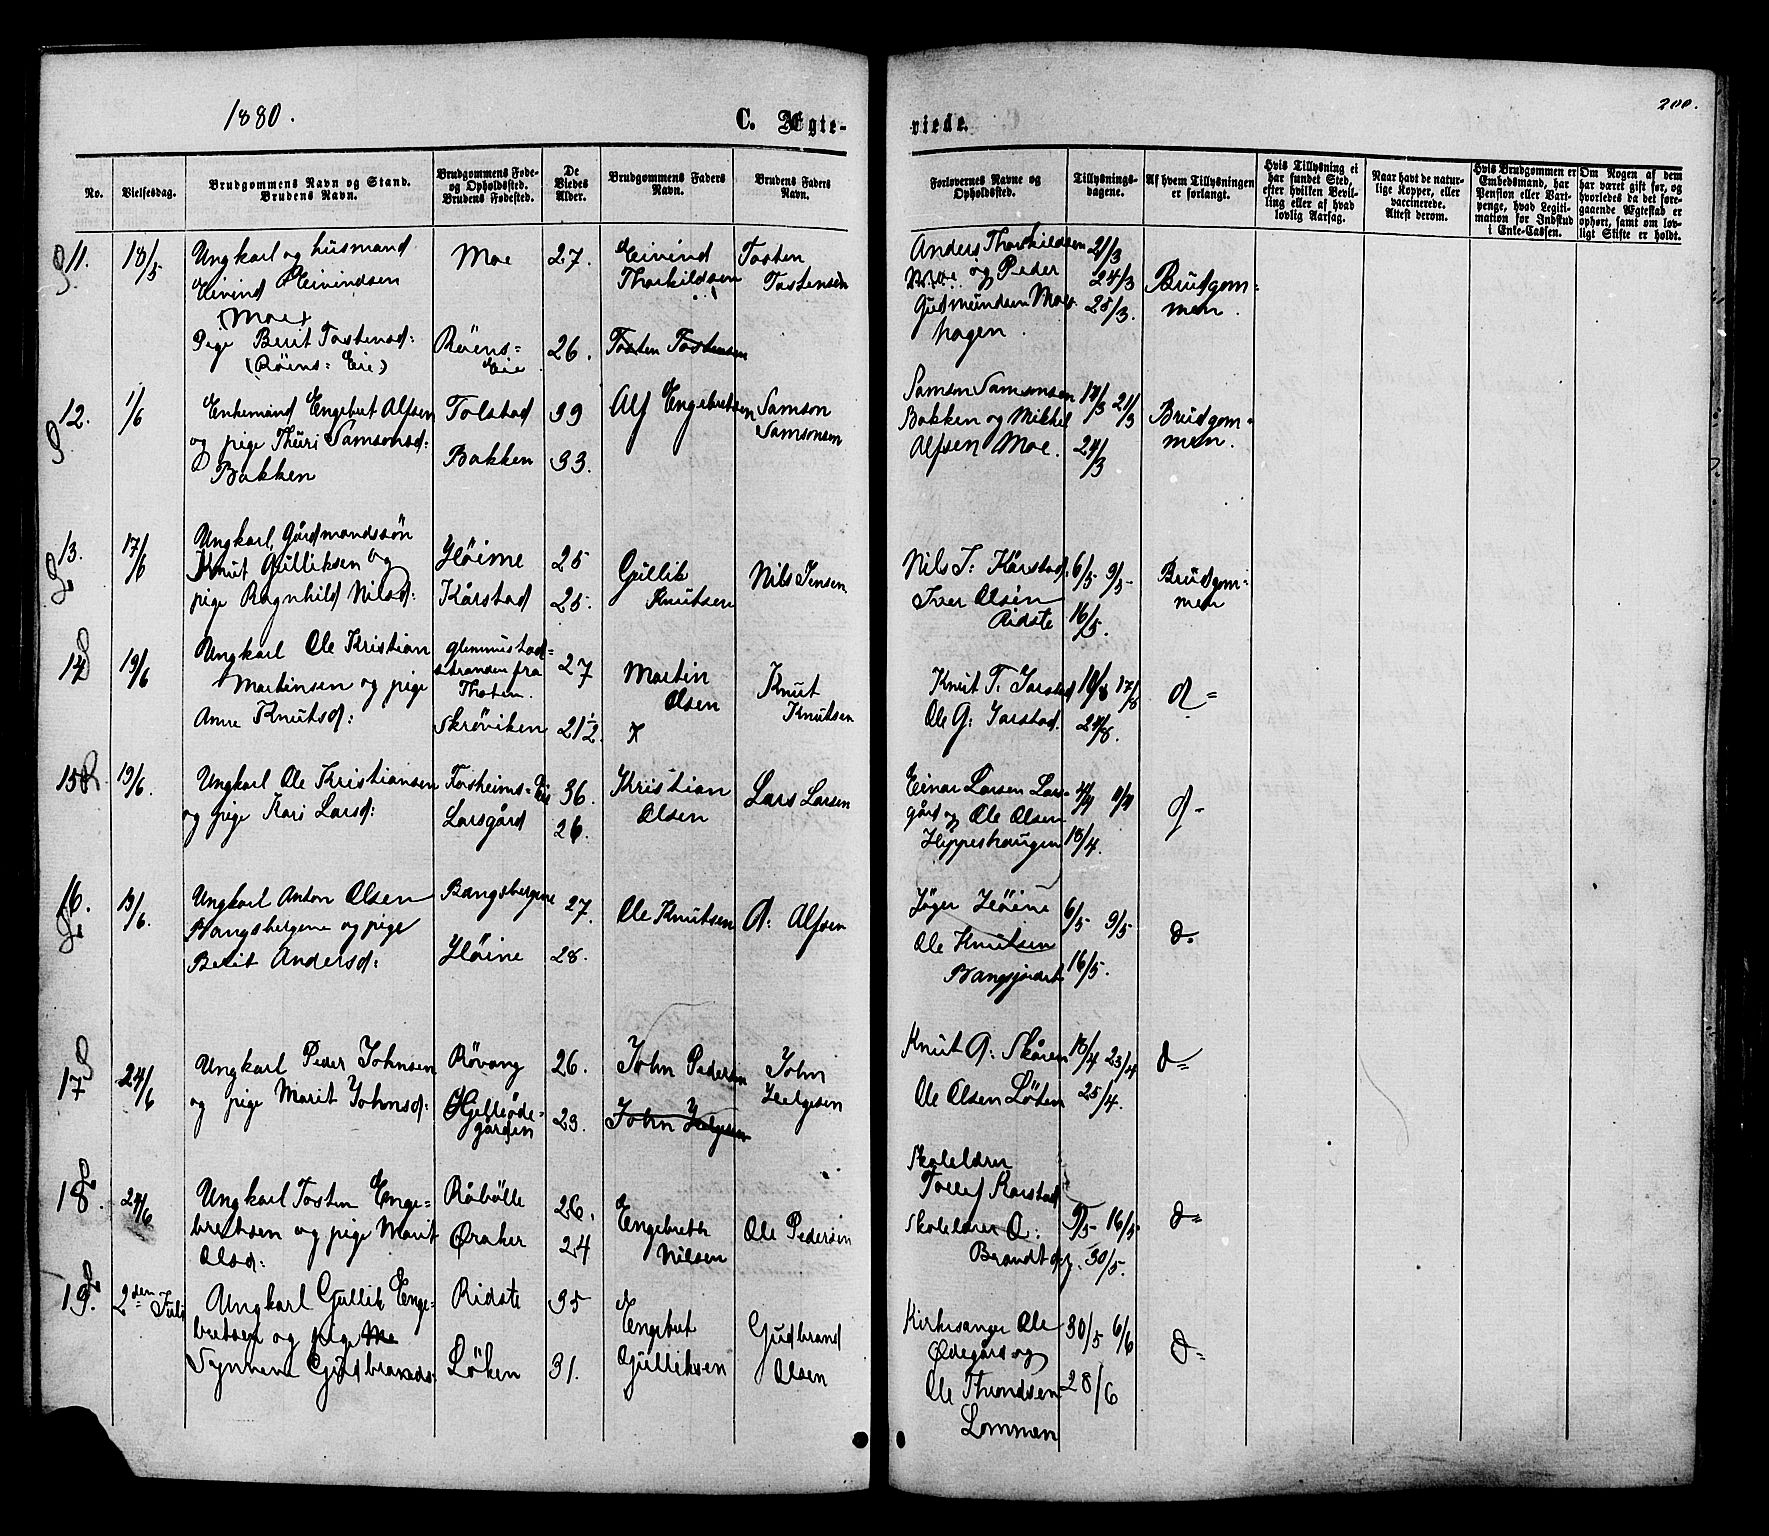 1880.
C. Ægte-
viede.
200.
No.
Vielsesdag.
Brudgommens Navn og Stand.
Brudens Navn.
Brudgommens Føde-
og Opholdssted.
Brudens Fødested.
De
Viedes
Alder.
Brudgommens Faders
Navn.
Brudens Faders
Navn.
Forlovernes Navne og
Opholdssted.
Tillysnings-
dagene.
Af hvem Tillysningen
er forlangt.
Hvis Tillysning ei
har fundet Sted,
efter hvilken Bevil-
ling eller af hvad
lovlig Aarsag.
Naar havt de natur-
lige Kopper, eller
vaccinerede.
Attest derom.
Hvis Brudgommen er
Embedsmand, har
Pension eller Vart-
penge, hvad Legiti-
mation for Indskud
i Enke-Cassen.
Om Nogen af dem
har været gift før, og
hvorledes da det fore-
gaaende Ægteskab er
ophørt, samt om lov-
ligt Skifte er holdt.
11. 18/5
Ungkarl og husmand
Eivind Eivindsen
(Moe)
Pige Berit Tostensd:
(Röens= Eie)
Moe 27.
Röens=
Eie 26.
Eivind
Thorkildsen
Tosten Tostensen
Tosten
Tostensen
Anders Thorkildsen
Moe og Peder
Gudmundsen Moe-
hagen.
21/3
24/3
28/3.
Brudgom=
men.
12. 1/6
Enkemand Engebret Alfsen
og pige Thuri Samsonsd:
Bakken
Tolstad 39
Bakken 33.
Alf Engebretsen
Samson
Samsonsen
Samson Samsonsen
Bakken og Mikkel
Alfsen Moe.
21/3
24/3
Brudgom=
men.
13. 17/6
Ungkarl, Gårdmandssön
Knut Gulliksen og
pige Ragnhild Nilsd:
Höime 25
Kårstad 25.
Gullik
Knutsen
Nils Jensen
Nils J. Kårstad
Iver Olsen
Ridste
6/5 9/5
16/5.
Brudgom=
men
14 19/6
Ungkarl Ole Kristian
Martinsen og pige
Anne Knutsd:
stranden fra
Thoten.
27
Skröviken 21½.
Martin
Olsen
Knut
Knutsen
Knut T. Jarstad
Ole G: Jarstad.
17/8
d=
15 19/6.
Ungkarl Ole Kristiansen
og pige Kari Larsd:
Forsheims= Eie 36.
Larsgård 26.
Kristian
Olsen
Lars Larsen
Einar Larsen Lars-
gård og Ole Olsen
Heppeshaugen
4/4 11/4
18/4.
d=
16. 19/6.
Ungkarl Anton Olsen
Bangsbergene og pige
Berit Andersd:
Bangsbergene 27.
Höine 28.
Ole Knutsen
A: Alfsen
Höine
Ole Knutsen
Bangsjordet
6/5 9/5
16/5.
d.
17 24/6
Ungkarl Peder Johnsen
og pige Marit Johnsd:
Rövang 26.
Hjelleöde-
garden 23.
John Pedersen
John Helgesen
John
Helgesen
Knut A: Skåren
Ole Olsen Löken
18/4 23/4
25/4.
d=
18. 24/6
Ungkarl Tosten Enge=
bretsen og pige Marit
Olsd:
Råbölle 26.
Øraker 24
Engebreth
Nilsen
Ole Pedersen
Skolelærer
Tollef Karstad
Skolelærer O:
Brandt
9/5 16/5
30/5.
d=
19. 2den Juli
Ungkarl Gullik Enge=
bretsen og pige Ma
Synneva Gudbrandsd:
Ridste 35
Löken 31.
Engebret
Gulliksen
Gudbrand
Olsen
Kirkesanger Ole
Ødegård og
Ole Throndsen
Lommen
30/5 6/6
28/6
d=